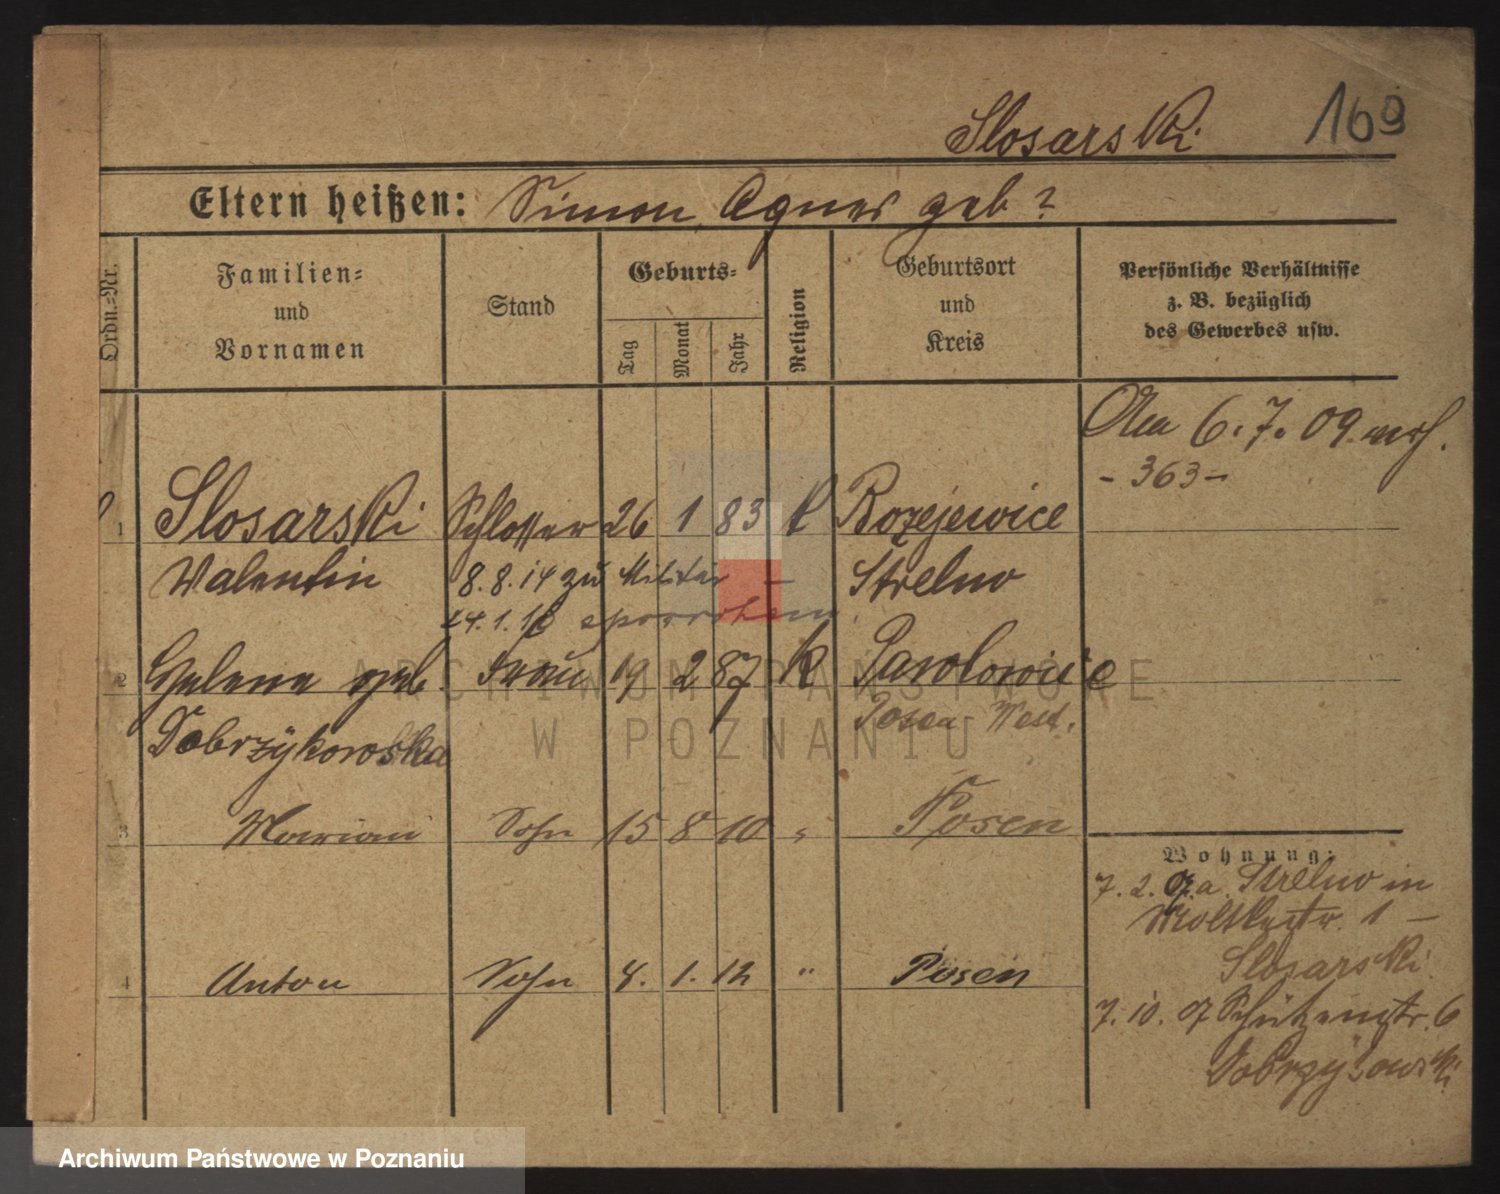 169
Slosarski
Eltern heißen: Simon, Agnes geb ?
Ordn.=Nr.
Familien=
und
Vornamen
Stand
Geburts=
Tag
Monat
Jahr
Religion
Geburtsort
und
Kreis
Persönliche Verhältnisse
z. B. bezüglich
des Gewerbes usw.
Am 6. 7. 09
- 363 -
1 Slosarski Schlosser 26 1 83 k Rozejewice
Valentin 8. 8. 14 zu Militär - Strelno
24. 1. 18
2 Helene geb. Frau 19 2 87 k Pawlowice
Dobrzykowska Posen West.
3 Marian Sohn 15 8 10 " Posen
4 Anton Sohn 4. 1. 12 " Posen
Wohnung:
7. 2. 07. a. Strelno in
Moltkestr. 1 -
Slosarski
7. 10. 07 Schützenstr. 6
Dobrzykowski
ARCHIWUM PAŃSTWOWE
W POZNANIU
Archiwum Państwowe w Poznaniu